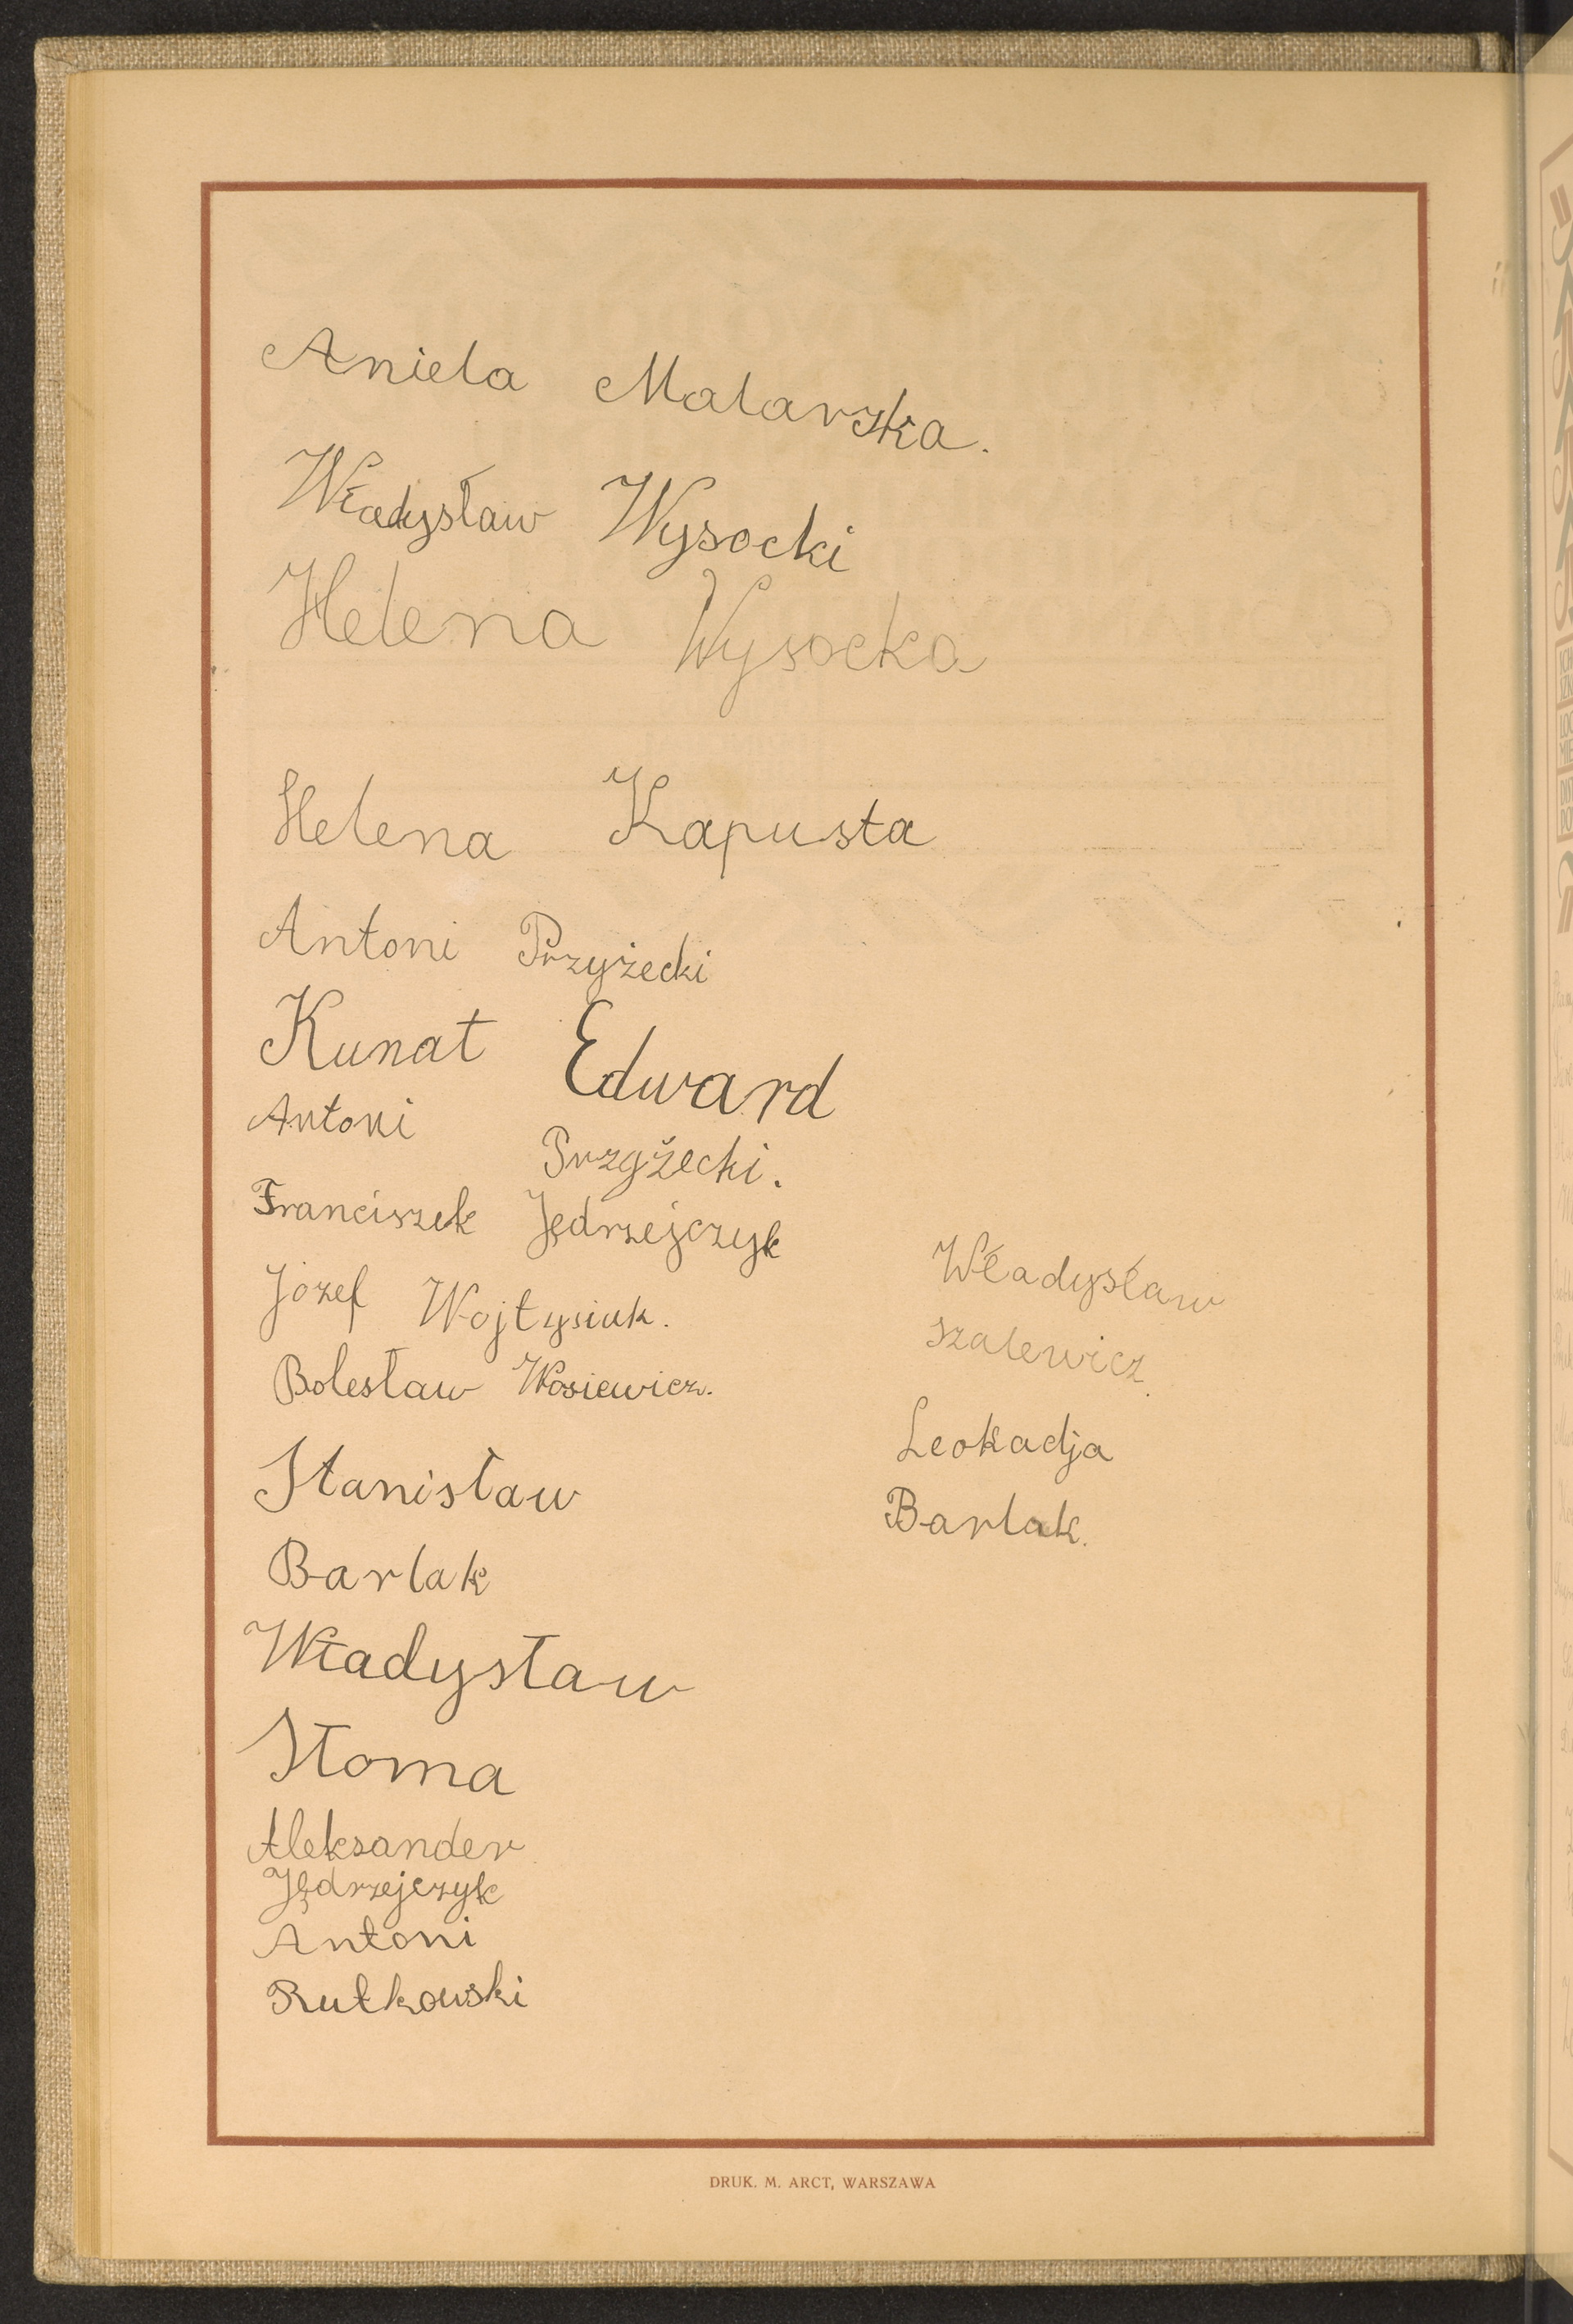 Aniela Malarska.
Władysław Wysocki
Helena Wysocka
Helena Kapusta
Antoni Przyżecki
Kunat Edward
Antoni Przyżecki.
Franciszek Jędrzejczyk
Józef Wojtysiuk.
Bolesław Wosiewicz.
Stanisław
Barlak
Władysław
Słoma
Aleksander
Jędrzejczyk
Antoni
Rutkowski
Władysław
Szalewicz.
Leokadja
Barlak.
DRUK. M. ARCT, WARSZAWA